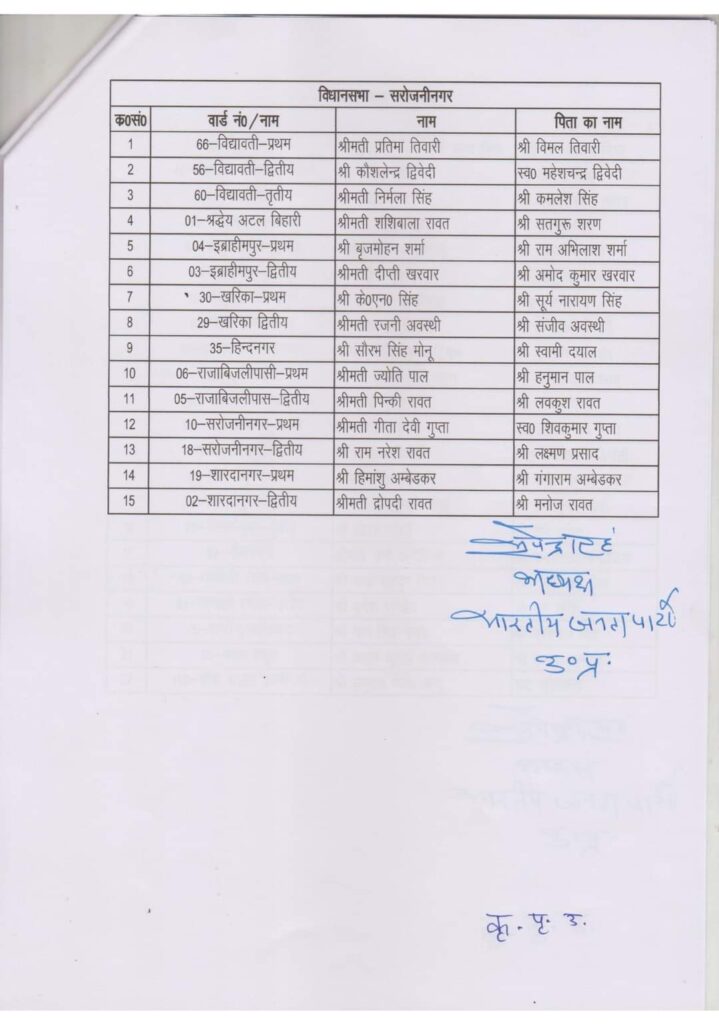 विधानसभा – सरोजनीनगर
क०सं० वार्ड नं०/नाम नाम पिता का नाम
1 66–विद्यावती–प्रथम श्रीमती प्रतिमा तिवारी श्री विमल तिवारी
2 56–विद्यावती–द्वितीय श्री कौशलेन्द्र द्विवेदी स्व० महेशचन्द्र द्विवेदी
3 60–विद्यावती–तृतीय श्रीमती निर्मला सिंह श्री कमलेश सिंह
4 01–श्रद्धेय अटल बिहारी श्रीमती शशिबाला रावत श्री सतगुरू शरण
5 04–इब्राहीमपुर–प्रथम श्री बृजमोहन शर्मा श्री राम अभिलाश शर्मा
6 03–इब्राहीमपुर–द्वितीय श्रीमती दीप्ती खरवार श्री अमोद कुमार खरवार
7 30–खरिका–प्रथम श्री के०एन० सिंह श्री सूर्य नारायण सिंह
8 29–खरिका द्वितीय श्रीमती रजनी अवस्थी श्री संजीव अवस्थी
9 35–हिन्दनगर श्री सौरभ सिंह मोनू श्री स्वामी दयाल
10 06–राजाबिजलीपासी–प्रथम श्रीमती ज्योति पाल श्री हनुमान पाल
11 05–राजाबिजलीपास–द्वितीय श्रीमती पिन्की रावत श्री लवकुश रावत
12 10–सरोजनीनगर–प्रथम श्रीमती गीता देवी गुप्ता स्व० शिवकुमार गुप्ता
13 18–सरोजनीनगर–द्वितीय श्री राम नरेश रावत श्री लक्ष्मण प्रसाद
14 19–शारदानगर–प्रथम श्री हिमांशु अम्बेडकर श्री गंगाराम अम्बेडकर
15 02–शारदानगर–द्वितीय श्रीमती द्रोपदी रावत श्री मनोज रावत
अध्यक्ष
भारतीय जनता पार्टी
उ०प्र.
कृ. पृ. उ.